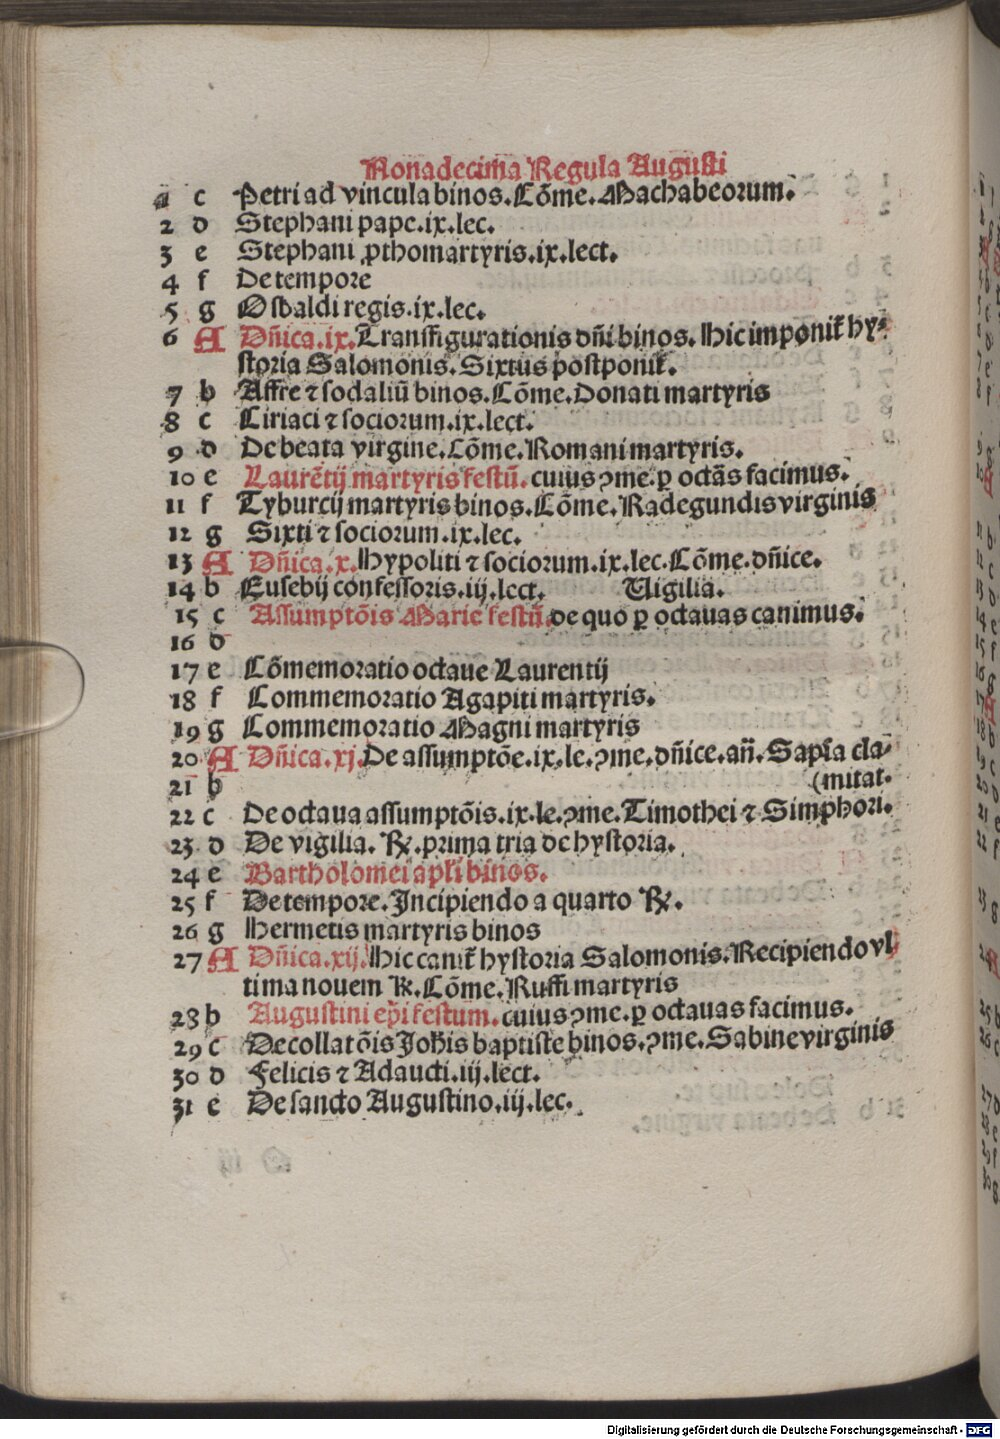 Nonadecima Regula Augusti
1 c Petri ad vincula binos. Cōme. Machabeorum.
2 d Stephani pape. ix. lec.
3 e Stephani ꝓthomartyris. ix. lect.
4 f De tempore
5 g Oswaldi regis. ix. lec.
6 A Dñica. ix. Transfigurationis dñi binos. Hic imponit̃ hy⸗
storia Salomonis. Sixtus postponit̃.
7 b Affre ⁊ sodaliū binos. Cōme. Donati martyris
8 c Ciriaci ⁊ sociorum. ix. lect.
9 d De beata virgine. Cōme. Romani martyris.
10 e Laurētij martyris festū. cuius ꝯme. ꝑ octãs facimus.
11 f Tyburcij martyris binos. Cōme. Radegundis virginis
12 g Sixti ⁊ sociorum. ix. lec.
13 A Dñica. x. Hypoliti ⁊ sociorum. ix. lec. Cōme. dñice.
14 b Eusebij confessoris. iij. lect. Vigilia.
15 c Assumptōis Marie festū. de quo ꝑ octauas canimus.
16 d
17 e Cōmemoratio octaue Laurentij
18 f Commemoratio Agapiti martyris.
19 g Commemoratio Magni martyris
20 A Dñica. xj. De assumptōe. ix. le. ꝯme. dñice. añ. Sapĩa cla⸗
21 b (mitat.
22 c De octaua assumptōis. ix. le. ꝯme. Timothei ⁊ Simphori.
23 d De vigilia. ℞. prima tria de hystoria.
24 e Bartholomei apl̃i binos.
25 f De tempore. Incipiendo a quarto ℞.
26 g Hermetis martyris binos
27 A Dñica. xij. Hic canit̃ hystoria Salomonis. Recipiendo vl
tima nouem ℞. Cōme. Ruffi martyris
28 b Augustini ep̃i festum. cuius ꝯme. ꝑ octauas facimus.
29 c Decollatōis Joh̃is baptiste binos. ꝯme. Sabine virginis
30 d Felicis ⁊ Adaucti. iij. lect.
31 e De sancto Augustino. iij. lec.
Digitalisierung gefördert durch die Deutsche Forschungsgemeinschaft - DFG